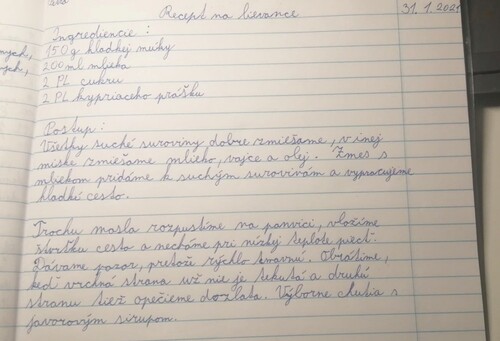 Recept na lievance 31.1.202
Ingrediencie :
150g hladkej múky
200ml mlieka
2 PL cukru
2 PL kypriaceho prášku
Postup:
Všetky suché suroviny dobre zmiešame, v inej
miske zmiešame mlieko, vajce a olej. Zmes s
mliekom pridáme k suchým surovinám a vypracujeme
hladké cesto.
Trochu masla rozpustíme na panvici, vložíme
cesto a necháme pri nízkej teplote piecť.
Dávame pozor, pretože rýchlo hnednú. Obrátime,
keď vrchná strana už nie je tekutá a druhú
stranu tiež opečieme dozlata. Výborne chutia s
javorovým sirupom.